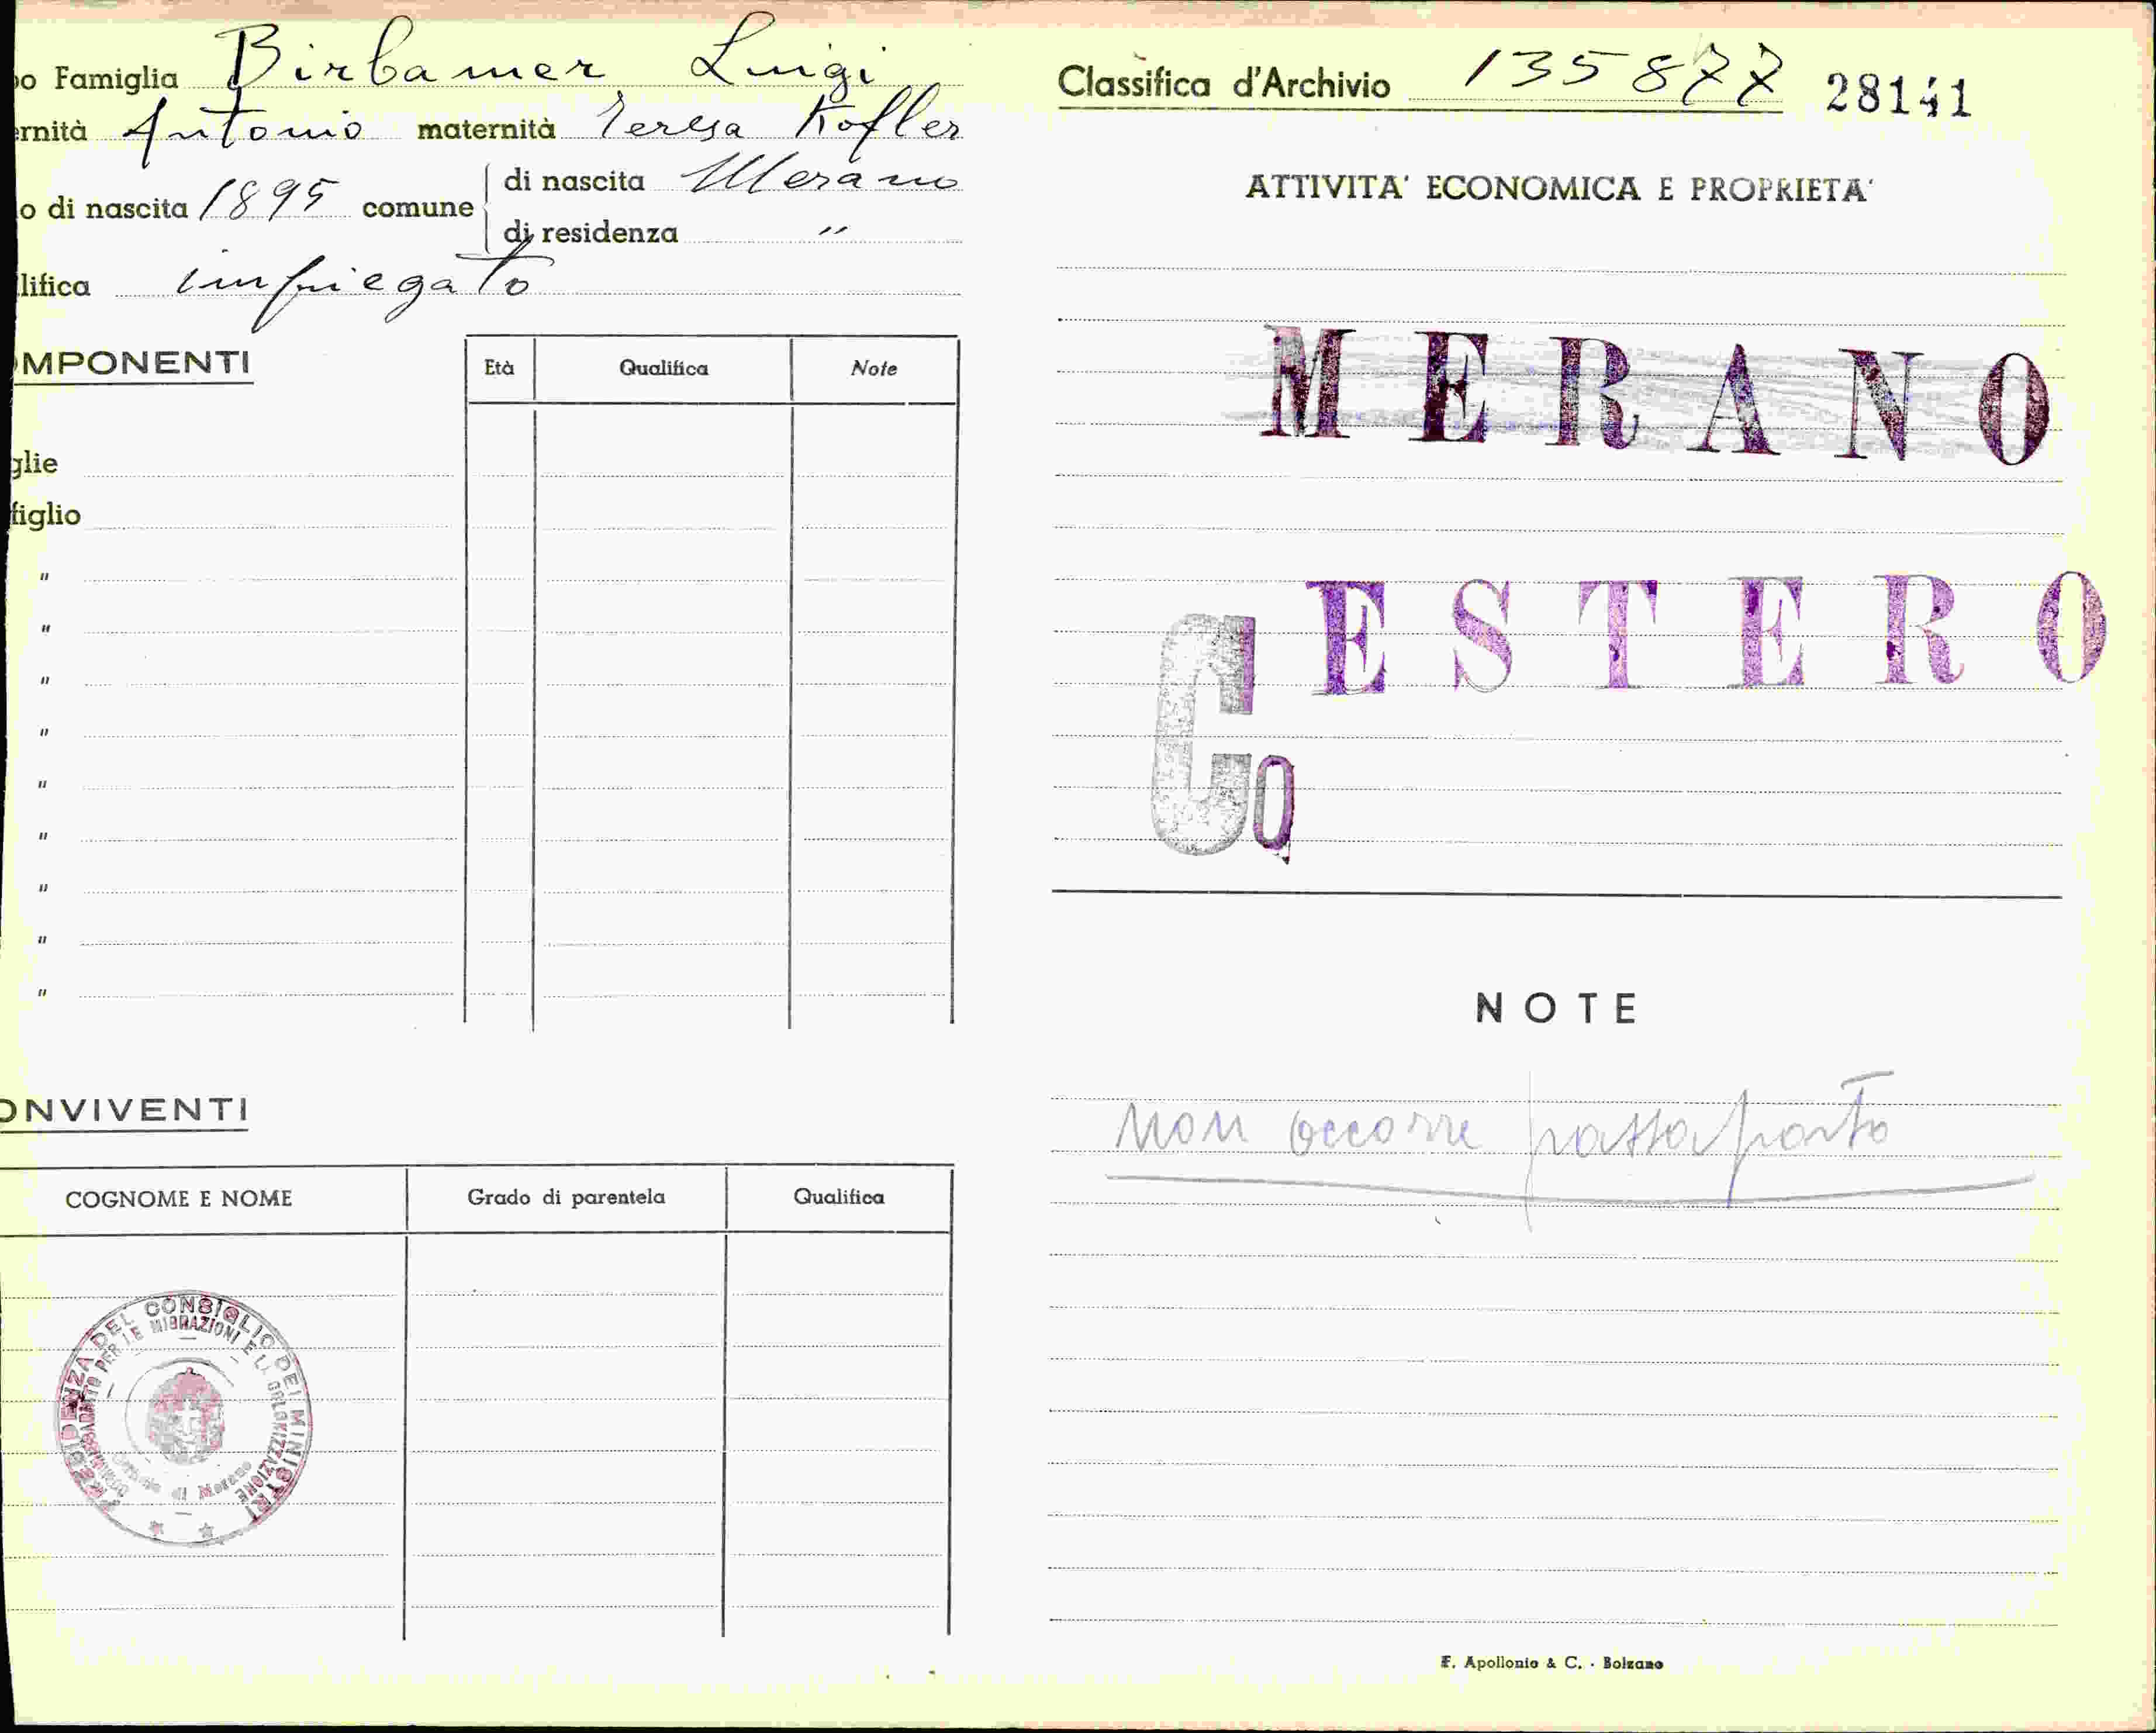 o Famiglia Birbamer Luigi
rnità Antonio maternità Teresa Kofler
o di nascita 1895 comune di nascita Merano
di residenza "
lifica impiegato
MPONENTI
Età Qualifica Note
glie
figlio
"
"
"
"
"
"
"
"
"
ONVIVENTI
COGNOME E NOME Grado di parentela Qualifica
PRESIDENZA DEL CONSIGLIO DEI MINISTRI
PER LE MIGRAZIONI E LA COLONIZZAZIONE
di Merano
Classifica d'Archivio 135877 28141
ATTIVITA' ECONOMICA E PROPRIETA'
MERANO
ESTERO
G
NOTE
non occorre passaporto
F. Apollonio & C. - Bolzano